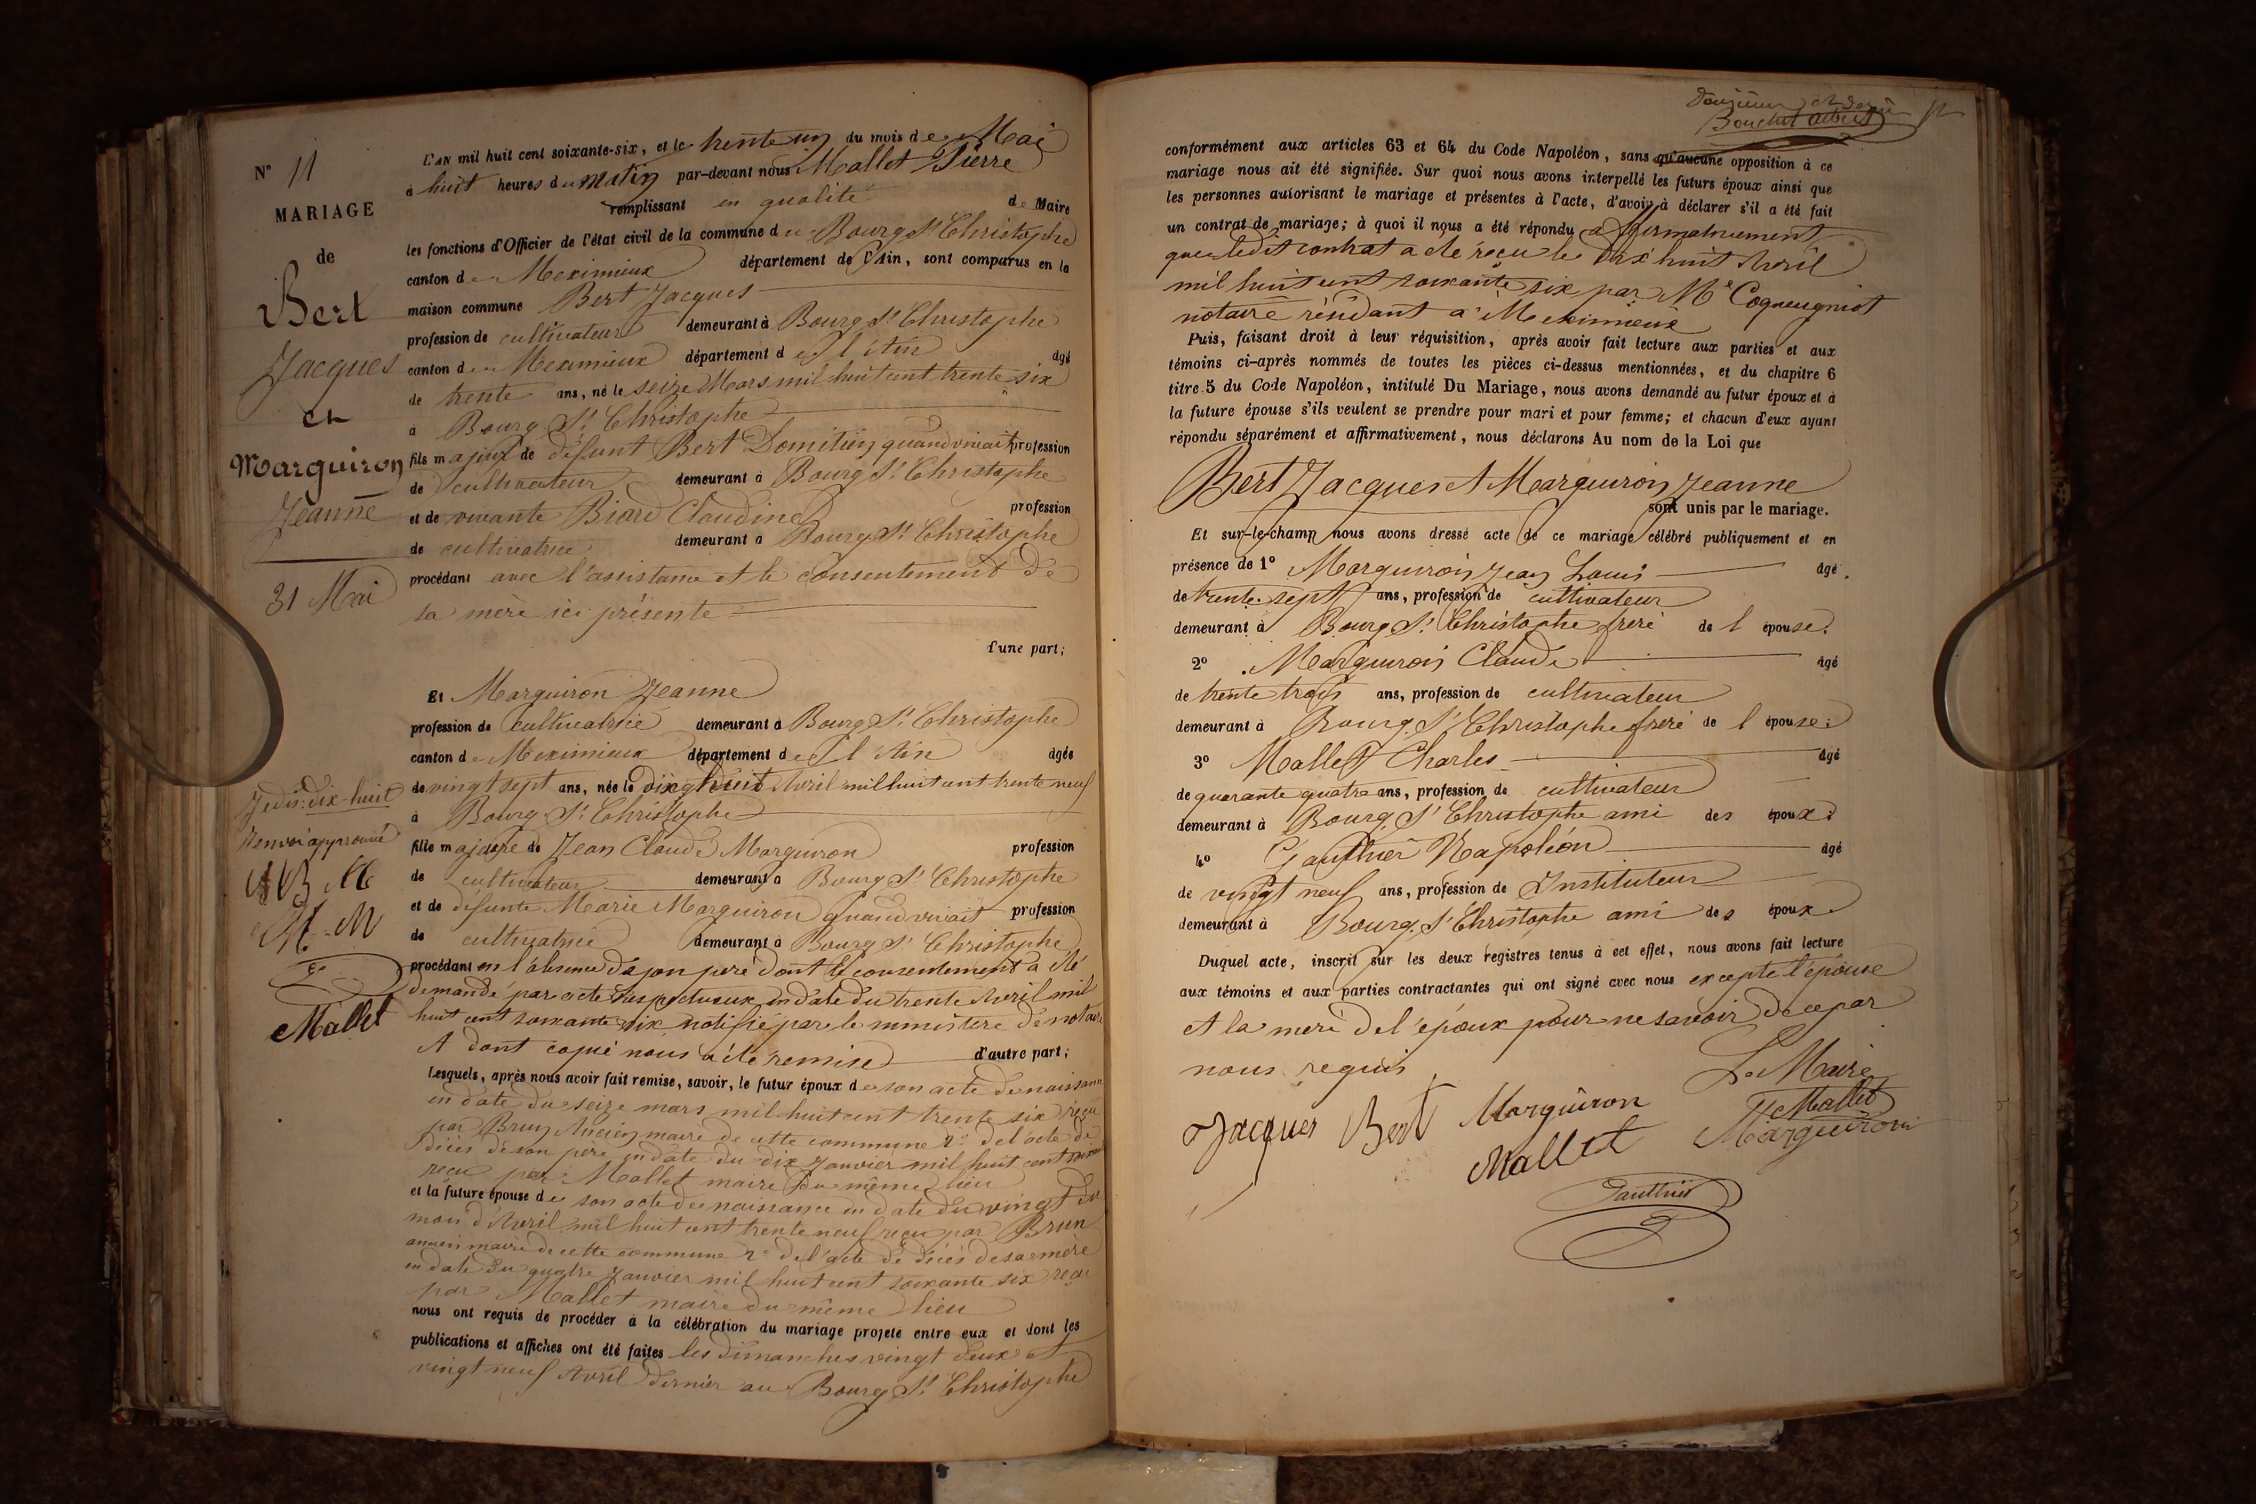 N° 11
MARIAGE
de
Bert
Jacques
et
Marguiron
Jeanne
31 Mai
Je dis: dix-huit
Renvoi approuvé
Mallet
L'AN mil huit cent soixante-six, et le trente un du mois de Mai
à huit heures du matin par-devant nous Mallet Pierre
remplissant en qualité de Maire
les fonctions d'Officier de l'état civil de la commune de Bourg St Christophe
canton de Meximieux département de l'Ain, sont comparus en la
maison commune Bert Jacques
profession de cultivateur demeurant à Bourg St Christophe
canton de Meximieux département de l'Ain âgé
de trente ans, né le seize Mars mil huit cent trente six
à Bourg St Christophe
fils majeur de défunt Bert Domitien quand vivait profession
de cultivateur demeurant à Bourg St Christophe
et de vivante Biard Claudine profession
de cultivatrice demeurant à Bourg St Christophe
procédant avec l'assistance et le consentement de
sa mère ici présente
d'une part;
Et Marguiron Jeanne
profession de cultivatrice demeurant à Bourg St Christophe
canton de Meximieux département de l'Ain âgée
de vingt sept ans, née le dix huit Avril mil huit cent trente neuf
à Bourg St Christophe
fille majeure de Jean Claude Marguiron profession
de cultivateur demeurant à Bourg St Christophe
et de défunte Marie Marguiron quand vivait profession
de cultivatrice demeurant à Bourg St Christophe
procédant en l'absence de son père dont le consentement a été
demandé par acte respectueux en date du trente Avril mil
huit cent soixante six notifié par le ministère de notaire
et dont copie nous a été remise d'autre part;
Lesquels, après nous avoir fait remise, savoir, le futur époux de son acte de naissance
en date du seize mars mil huit cent trente six reçu
par Brun Ancien maire de cette commune 2° de l'acte de
décès de son père en date du dix Janvier mil huit cent
reçu par Mallet maire du même lieu
et la future épouse de son acte de naissance en date du vingt du
mois d'Avril mil huit cent trente neuf reçu par Brun
ancien maire de cette commune 2° de l'acte de décès de sa mère
en date du quatre Janvier mil huit cent soixante six reçu
par Mallet maire du même lieu
nous ont requis de procéder à la célébration du mariage projeté entre eux et dont les
publications et affiches ont été faites les dimanches vingt deux et
vingt neuf Avril dernier au Bourg St Christophe
Bouchet
conformément aux articles 63 et 64 du Code Napoléon, sans qu'aucune opposition à ce
mariage nous ait été signifiée. Sur quoi nous avons interpellé les futurs époux ainsi que
les personnes autorisant le mariage et présentes à l'acte, d'avoir à déclarer s'il a été fait
un contrat de mariage; à quoi il nous a été répondu affirmativement
que ledit contrat a été reçu le dix huit Avril
mil huit cent soixante six par Me Coqueugniot
notaire résidant à Meximieux
Puis, faisant droit à leur réquisition, après avoir fait lecture aux parties et aux
témoins ci-après nommés de toutes les pièces ci-dessus mentionnées, et du chapitre 6
titre 5 du Code Napoléon, intitulé Du Mariage, nous avons demandé au futur époux et à
la future épouse s'ils veulent se prendre pour mari et pour femme; et chacun d'eux ayant
répondu séparément et affirmativement, nous déclarons Au nom de la Loi que
Bert Jacques et Marguiron Jeanne
sont unis par le mariage.
Et sur-le-champ nous avons dressé acte de ce mariage célébré publiquement et en
présence de 1° Marguiron Jean Louis âgé
de trente sept ans, profession de cultivateur
demeurant à Bourg St Christophe frère de l'épouse.
2° Marguiron Claude âgé
de trente trois ans, profession de cultivateur
demeurant à Bourg St Christophe frère de l'épouse.
3° Mallet Charles âgé
de quarante quatre ans, profession de cultivateur
demeurant à Bourg St Christophe ami des époux.
4° Gauthier Napoléon âgé
de vingt neuf ans, profession de Instituteur
demeurant à Bourg St Christophe ami des époux
Duquel acte, inscrit sur les deux registres tenus à cet effet, nous avons fait lecture
aux témoins et aux parties contractantes qui ont signé avec nous excepté l'épouse
et la mère de l'époux pour ne savoir de ce par
nous requis
Le Maire
Jacques Bert Marguiron Mallet
Mallet Marguiron
Gauthier